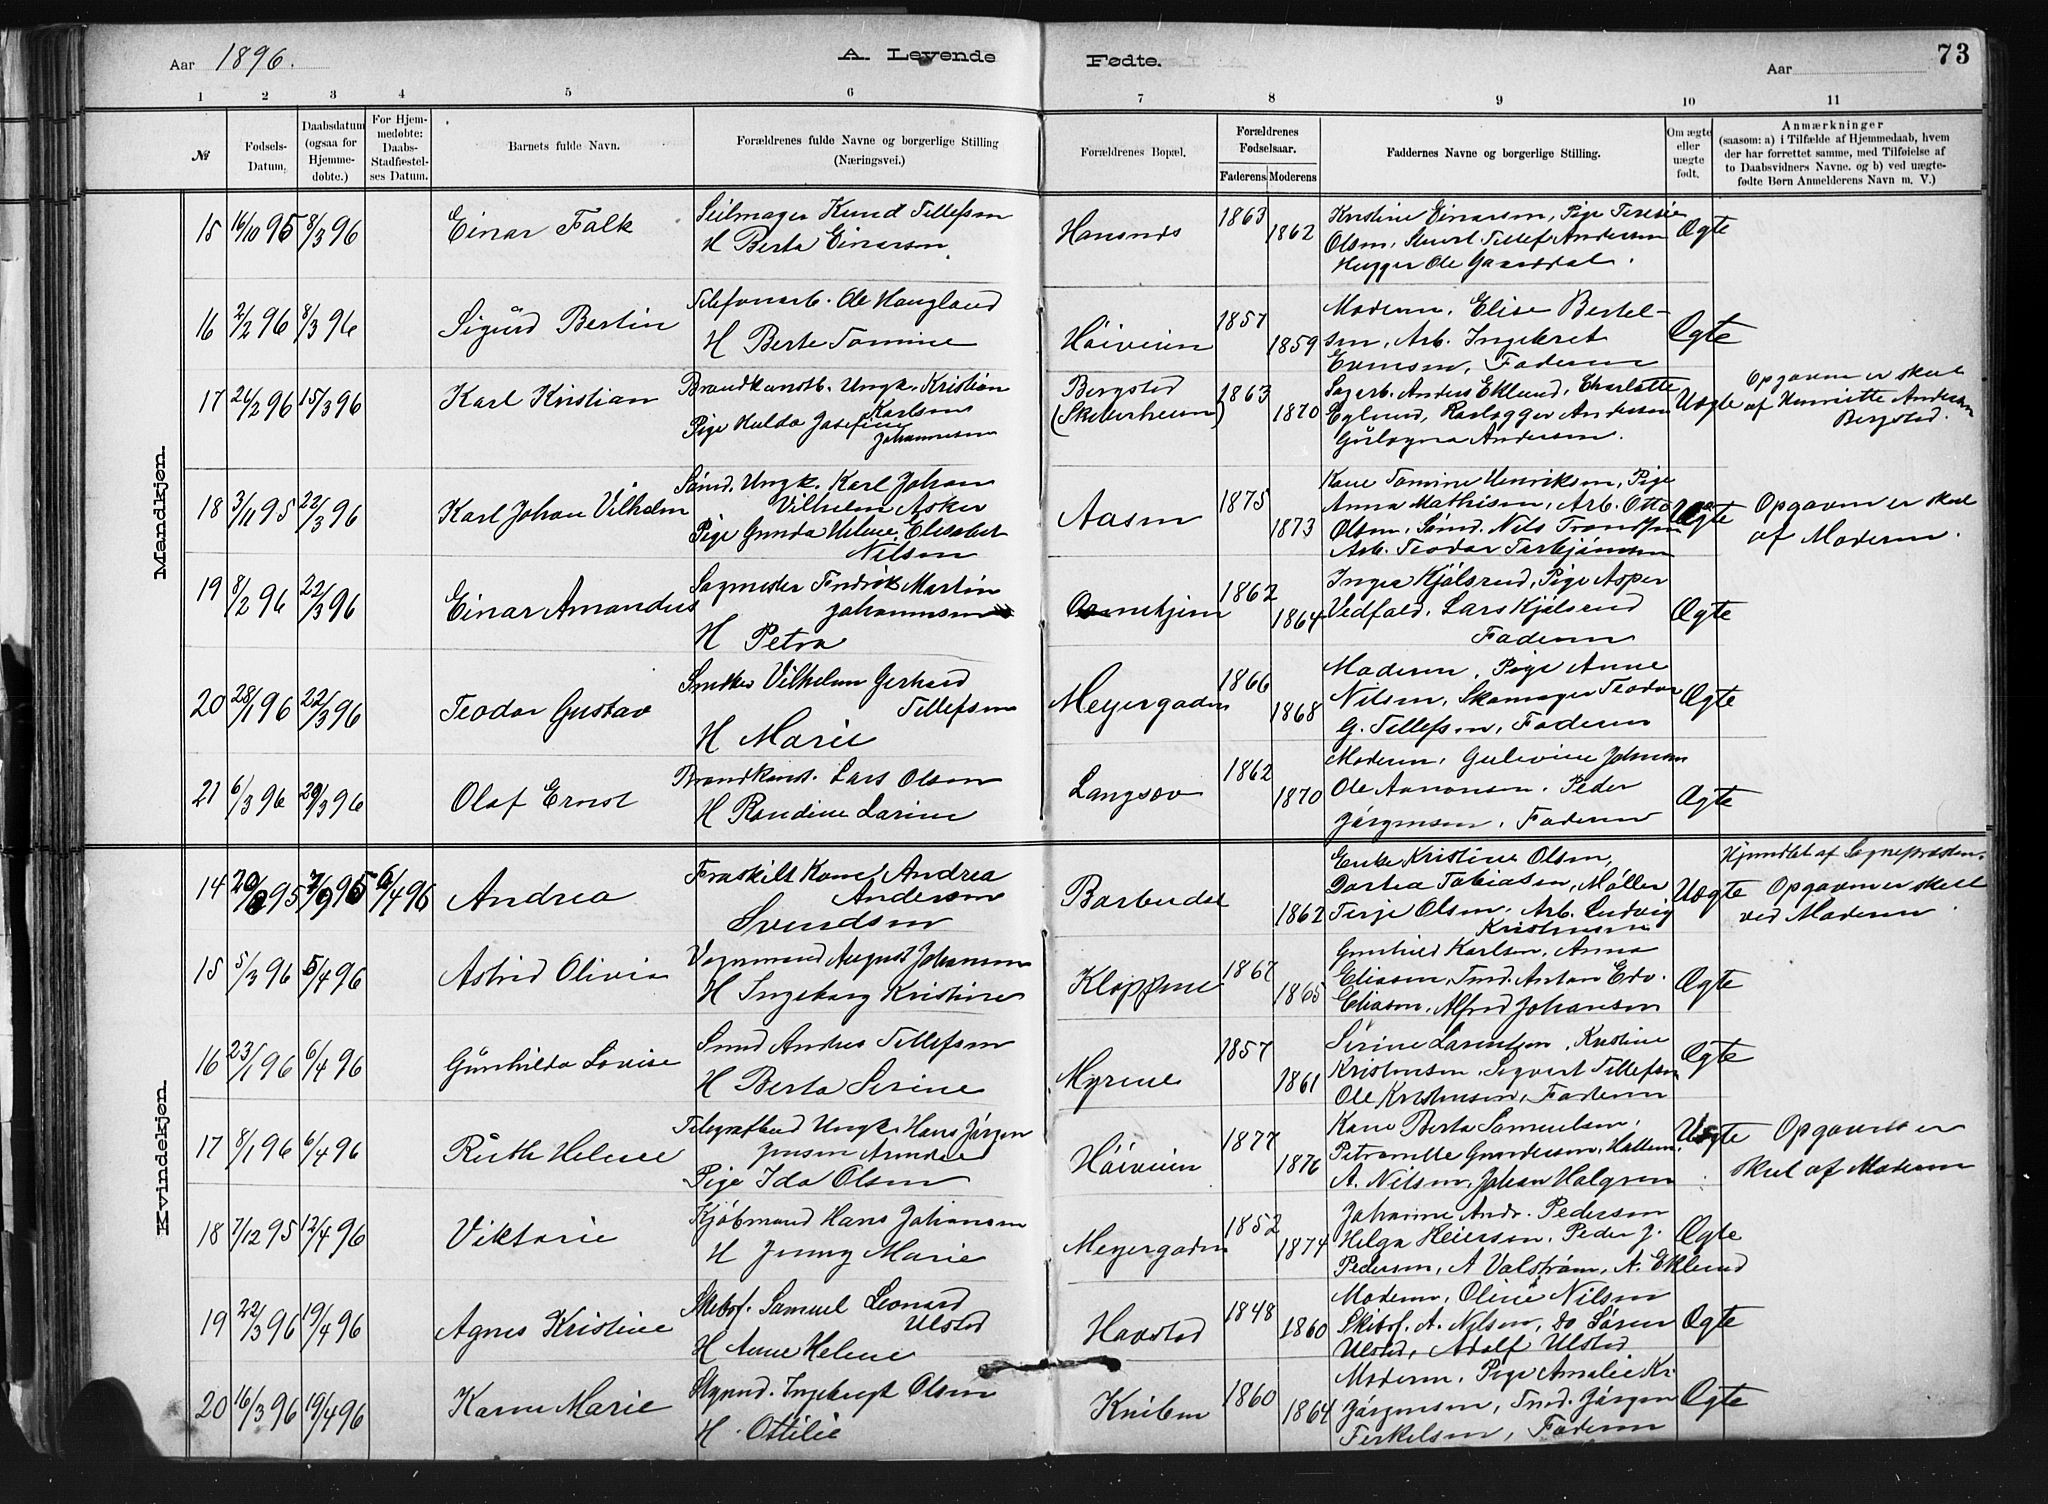 Aar 1896. A. Levende Fødte. Aar 73
1 2 3 4 5 6 7 8 9 10 11
№ Fødsels-Datum. Daabsdatum (ogsaa for Hjemmedøbte.) For Hjemmedøbte: Daabs-Stadfæstelses Datum. Barnets fulde Navn. Forældrenes fulde Navne og borgerlige Stilling (Næringsvei.) Forældrenes Bopæl. Forældrenes Fødselsaar. Faderens Moderens Faddernes Navne og borgerlige Stilling. Om ægte eller uægte født. Anmærkninger (saasom: a) i Tilfælde af Hjemmedaab, hvem der har forrettet samme, med Tilføielse af to Daabsvidners Navne. og b) ved uægtefødte Børn Anmelderens Navn m. V.)
Mandkjøn.
15 16/10 95 8/3 96 Einar Falk Seilmager Knud Tellefsen 1863 Kristine Einarsen, Pige Teresie
H Berta Einarsen 1862 Olsen, Stuert Tellef Andersen Ægte
Hugger Ole
16 2/2 96 8/3 96 Sigurd Bertin Telefonarb. Ole Haugland Høiveien 1857 Moderen, Elise Bertel-
H Berte Tomine 1859 sen, Arb. Ingebret Ægte
Evensen, Faderen
17 26/2 96 15/3 96 Karl Kristian Brandkonstb. Ungk. Kristian Karlsen Bergsted 1863 Sagarb. Anders Eklund, Charlotte Uægte Opgaven er skeet
Pige Hulda Josefine Johannesen 1870 Eglund, Andersen af Henriette Andersen
Andersen. Bergsted.
18 3/11 95 22/3 96 Karl Johan Vilhelm Sømd. Ungk. Karl Johan Aasen 1875 Kone Tomine Henriksen, Pige
Vilhelm Asker Anna Mathisen, Arb. Otto Opgaven er skeet
Pige Gunda Helene Elisabet 1873 Olsen, Sømd. Nils Trondsen af Moderen.
Nilsen Arb. Teodor Terkjønsen
19 8/2 96 22/3 96 Einar Amandus Sagmester Fredrik Martin 1862 Inger Kjølsrud, Pige Asper
Johannesen 1864 Vedfald, Lars Kjølsrud Ægte
H Petra Faderen
20 28/1 96 22/3 96 Teodor Gustav Smed Vilhelm Gerhard Meyergaden 1866 Moderen, Pige Anne
Tellefsen 1868 Nilsen, Skomager Teodor Ægte
H Marie G. Tellefsen, Faderen
21 6/3 96 29/3 96 Olaf Ernst Brandkonst. Lars Olsen Langsæv 1862 Moderen, Gulevine Johnsen
H Randine Larine 1870 Ole Aanonsen, Peder Ægte
Jørgensen, Faderen
Kvindekjøn.
14 95 7/9 95 6/4 96 Andrea Fraskilt Kone Andrea Barbudal Enke Kristine Olsen, Hjemdøbt af Sognepresten.
Andersen Dortea Tobiassen, Møller Uægte Opgaven er skeet
Svendsen 1862 Terje Olsen, Arb. Ludvig ved Moderen
Kristensen
15 5/3 96 5/4 96 Astrid Olivia Vognmand August Johansen Kloppene 1867 Gunhild Karlsen, Anna
H Ingeborg Kristine 1865 Eliasen, Tmd. Anton Edv. Ægte
Eliasen, Alfred Johansen
16 23/1 96 6/4 96 Gunhilda Lovise Smed Andres Tellefsen Myrene 1857 Serine Larentzen, Kristine Ægte
H Berta Serine 1861 Kristensen, Sigvart Tellefsen
Ole Kristensen, Faderen
17 8/1 96 6/4 96 Ruth Helene Telegrafbud Ungk. Hans Jørgen Høiveien 1877 Kone Berta Samuelsen, Uægte Opgaven er
Jensen Arendal 1876 Petronelle Gundersen, skeet af Moderen
Pige Ida Olsen A. Nilsen, Johan Halgren
18 7/12 95 12/4 96 Viktorie Kjøbmand Hans Johansen Meyergaden 1852 Johanne Andr. Pedersen
H Jenny Marie 1874 Helga Reiersen, Peder J. Ægte
Pedersen, A Valstrøm, A. Eklund
19 22/3 96 19/4 96 Agnes Kristine Skibsf. Samuel Leonard Havsted 1848 Moderen, Oline Nilsen
Ulsted 1860 Skibsf. A. Nilsen, Do Søren Ægte
H Anne Helene Ulsted, Adolf Ulsted
20 16/3 96 19/4 96 Karen Marie Styrmd. Ingebregt Olsen Kniben 1860 Moderen, Pige Amalie Kr.
H. Ottilie 1864 Jørgensen, Tmd. Jørgen Ægte
Terkelsen, Faderen